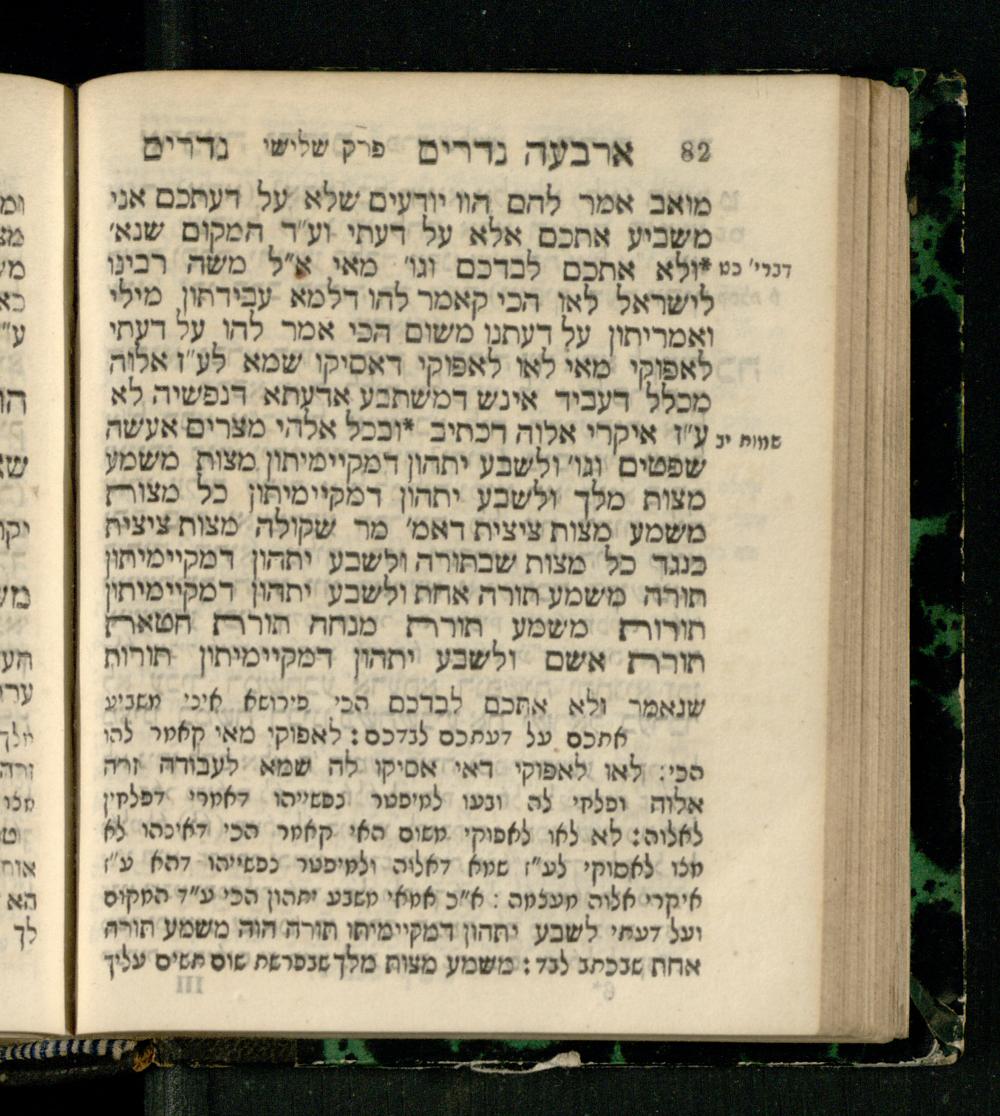 82 ארבעה נדרים פרק שלישי נדרים
מואב אמר להם הוו יודעים שלא על דעתכם אני
משביע אתכם אלא על דעתי וע״ד המקום שנא׳
דברי׳ כט *ולא אתכם לבדכם וגו׳ מאי א״ל משה רבינו
לישראל לאו הכי קאמר להו דלמא עבידתון מילי
ואמריתון על דעתנו משום הכי אמר להו על דעתי
לאפוקי מאי לאו לאפוקי דאסיקו שמא לע״ז אלוה
מכלל דעביד אינש דמשתבע אדעתא דנפשיה לא
שמות יב ע״ז איקרי אלוה דכתיב *ובכל אלהי מצרים אעשה
שפטים וגו׳ ולשבע יתהון דמקיימיתון מצות משמע
מצות מלך ולשבע יתהון דמקיימיתון כל מצות
משמע מצות ציצית דאמ׳ מר שקולה מצות ציצית
כנגד כל מצות שבתורה ולשבע יתהון דמקיימיתון
תורה משמע תורה אחת ולשבע יתהון דמקיימיתון
תורות משמע תורת מנחה תורת חטאת
תורת אשם ולשבע יתהון דמקיימיתון תורות
שנאמר ולא אתכם לבדכם הכי פירושא איכי משביע
אתכם על דעתכם לבדכם: לאפוקי מאי קאמר להו
הכי: לאו לאפוקי דאי אסיקו לה שמא לעבודה זרה
אלוה ופלחי לה ובעו למיפטר נפשייהו דאמרי דפלחין
לאלוה: לא לאו לאפוקי משום האי קאמר הכי דאינהו לא
מצו לאסוקי לע״ז שמא דאלוה ולמיפטר נפשייהו דהא ע״ז
איקרי אלוה מעצמה: א״כ אמאי משבע יתהון הכי ע״ד המקום
ועל דעתי לשבע יתהון דמקיימיתו תורה הוה משמע תורה
אחת שבכתב לבד: משמע מצות מלך שבפרשת שום תשים עליך
6*